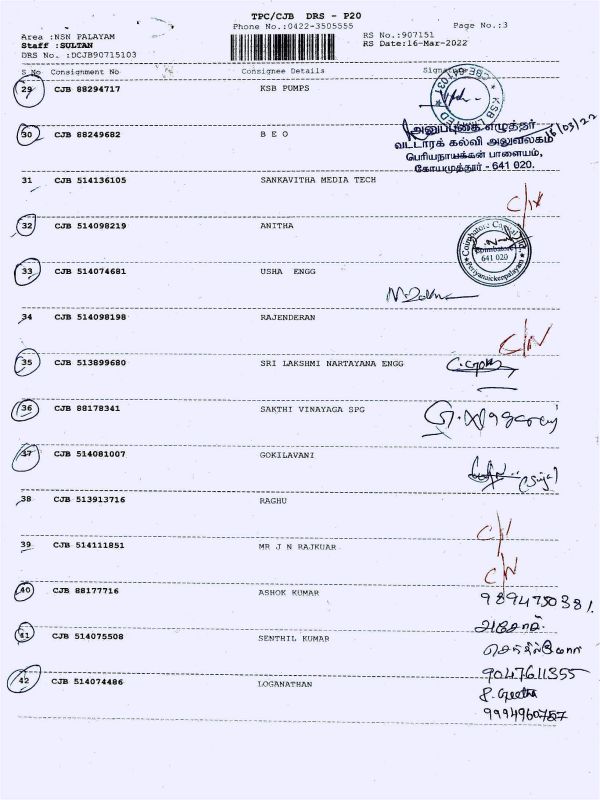 TPC/CJB DRS - P20
Phone No.:0422-3505555
Page No.:3
Area :NSN PALAYAM
Staff :SULTAN
DRS No. :DCJB90715103
RS No.:907151
RS Date:16-Mar-2022
S No Consignment No Consignee Details
29 CJB 88294717 KSB PUMPS
30 CJB 88249682 B E O
அனுப்புகை எழுத்தர்
வட்டாரக் கல்வி அலுவலகம்
பெரியநாயக்கன் பாளையம்,
கோயமுத்தூர் - 641 020.
16/03/22
31 CJB 514136105 SANKAVITHA MEDIA TECH
32 CJB 514098219 ANITHA
Coimbatore
641 020
Periyanaickenpalayam
33 CJB 514074681 USHA ENGG
34 CJB 514098198 RAJENDERAN
C/N
35 CJB 513899680 SRI LAKSHMI NARTAYANA ENGG
36 CJB 88178341 SAKTHI VINAYAGA SPG
37 CJB 514081007 GOKILAVANI
38 CJB 513913716 RAGHU
39 CJB 514111851 MR J N RAJKUAR
C/N
40 CJB 88177716 ASHOK KUMAR
9894750381
41 CJB 514075508 SENTHIL KUMAR
9047611355
42 CJB 514074486 LOGANATHAN
9994960787